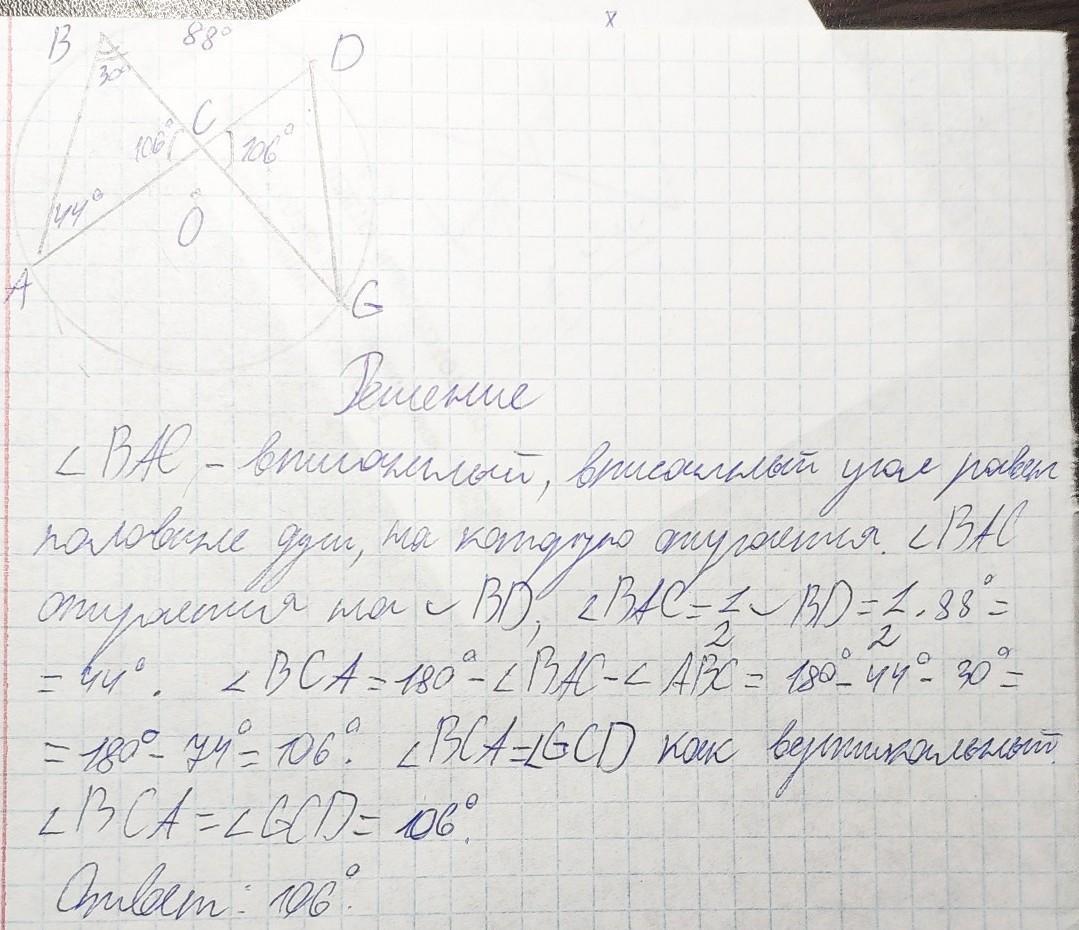 B 88° D
30°
C
106° 106°
44° O
A G
Решение
∠BAC - вписанный, вписанный угол равен
половине дуги, на которую опирается. ∠BAC
опирается на ◡BD, ∠BAC = 1/2 ◡BD = 1/2 · 88° =
= 44°. ∠BCA = 180° - ∠BAC - ∠ABC = 180° - 44° - 30° =
= 180° - 74° = 106°. ∠BCA = ∠GCD как вертикальный.
∠BCA = ∠GCD = 106°.
Ответ: 106°.